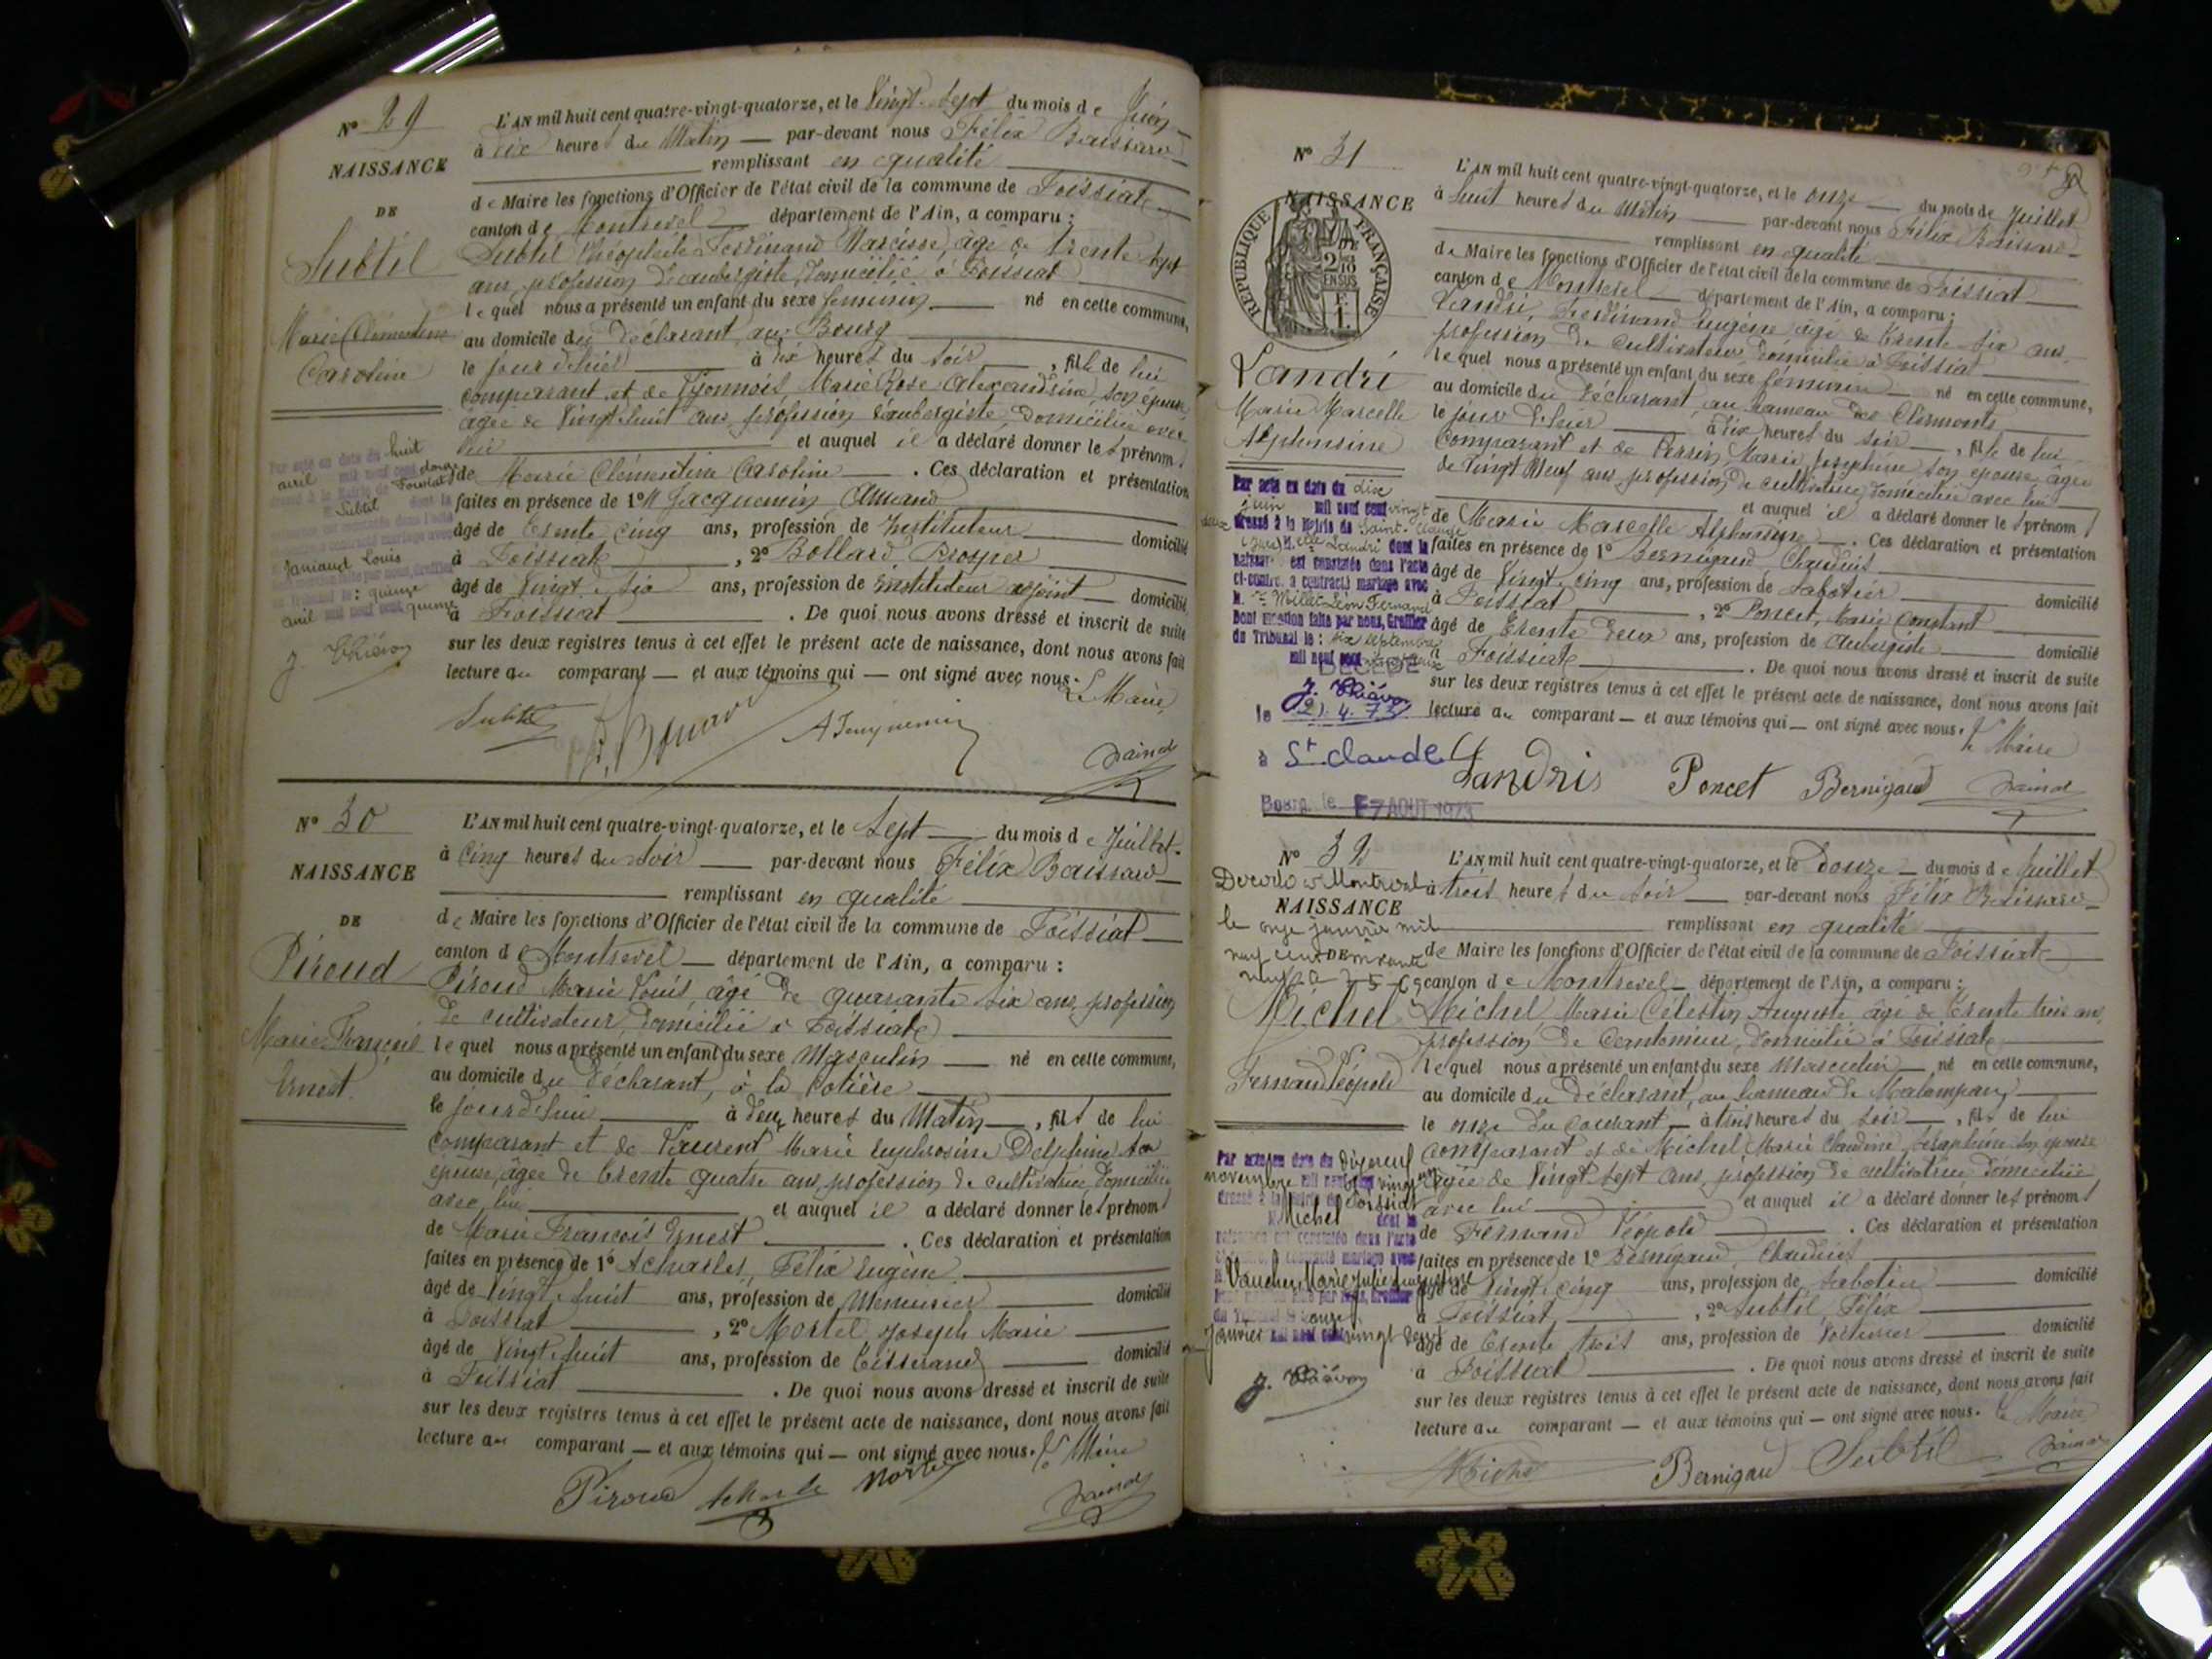 N° 29
NAISSANCE
DE
Subtil
Marie Clémentine
Caroline
L'AN mil huit cent quatre-vingt-quatorze, et le Vingt-Sept du mois de Juin
à dix heures du Matin par-devant nous Félix
remplissant en qualité
de Maire les fonctions d'Officier de l'état civil de la commune de Foissiat
canton de Montrevel département de l'Ain, a comparu :
Subtil Théophile Ferdinand Narcisse, âgé de trente sept
ans, profession d'aubergiste, domicilié à Foissiat
lequel nous a présenté un enfant du sexe féminin né en cette commune,
au domicile du déclarant, au Bourg
le jour d'hier à dix heures du soir, fille de lui
comparant et de Lyonnois, Marie Rose Alexandrine, son épouse
âgée de Vingt-huit ans, profession d'aubergiste, domiciliée avec
lui et auquel il a déclaré donner les prénoms
de Marie Clémentine Caroline. Ces déclaration et présentation
faites en présence de 1° Jacquemin, Amand
âgé de trente cinq ans, profession de Instituteur domicilié
à Foissiat, 2° Bollard Prosper
âgé de Vingt-six ans, profession de instituteur adjoint domicilié
à Foissiat. De quoi nous avons dressé et inscrit de suite
sur les deux registres tenus à cet effet le présent acte de naissance, dont nous avons fait
lecture au comparant et aux témoins qui ont signé avec nous. Le Maire
Par acte en date du huit
avril mil neuf cent
dressé à la Mairie de Foissiat
Subtil dont la
Janiaud Louis
au Tribunal le : quinze
avril mil neuf cent quinze
Subtil A Jacquemin
N° 30
NAISSANCE
DE
Piroud
Marie François
Ernest
L'AN mil huit cent quatre-vingt-quatorze, et le Sept du mois de Juillet
à Cinq heures du soir par-devant nous Félix
remplissant en qualité
de Maire les fonctions d'Officier de l'état civil de la commune de Foissiat
canton de Montrevel département de l'Ain, a comparu :
Piroud Marie Louis, âgé de quarante six ans, profession
de cultivateur, domicilié à Foissiat
lequel nous a présenté un enfant du sexe Masculin né en cette commune,
au domicile du déclarant, à la Cotière
le jourd'hui à deux heures du Matin, fils de lui
comparant et de Laurent Marie Euphrosine Delphine sa
épouse, âgée de trente quatre ans, profession de cultivatrice, domiciliée
avec lui et auquel il a déclaré donner les prénoms
de Marie François Ernest. Ces déclaration et présentation
faites en présence de 1° Acharles, Félix Eugène
âgé de Vingt-huit ans, profession de Menuisier domicilié
à Foissiat, 2° Mortel Joseph Marie
âgé de Vingt-huit ans, profession de Tisserand domicilié
à Foissiat. De quoi nous avons dressé et inscrit de suite
sur les deux registres tenus à cet effet le présent acte de naissance, dont nous avons fait
lecture au comparant et aux témoins qui ont signé avec nous. Le Maire
Piroud Acharles Mortel
N° 31
NAISSANCE
DE
RÉPUBLIQUE FRANÇAISE
2/10 EN SUS
F. 1.
Landri
Marie Marcelle
Alphonsine
L'AN mil huit cent quatre-vingt-quatorze, et le onze du mois de Juillet
à huit heures du Matin par-devant nous Félix
remplissant en qualité
de Maire les fonctions d'Officier de l'état civil de la commune de Foissiat
canton de Montrevel département de l'Ain, a comparu :
Landri, Ferdinand Eugène âgé de trente-six ans,
profession de cultivateur domicilié à Foissiat
lequel nous a présenté un enfant du sexe féminin né en cette commune,
au domicile du déclarant, au hameau des Clermonts
le jour d'hier à dix heures du soir, fille de lui
comparant et de Perrin, Marie Joséphine son épouse, âgée
de Vingt Neuf ans, profession de cultivatrice, domiciliée avec lui
et auquel il a déclaré donner les prénoms
de Marie Marcelle Alphonsine. Ces déclaration et présentation
faites en présence de 1° Bernigaud, Claudius
âgé de Vingt-cinq ans, profession de Sabotier domicilié
à Foissiat, 2° Poncet, Marie Constant
âgé de trente deux ans, profession de Aubergiste domicilié
Foissiat. De quoi nous avons dressé et inscrit de suite
sur les deux registres tenus à cet effet le présent acte de naissance, dont nous avons fait
lecture au comparant et aux témoins qui ont signé avec nous. Le Maire
Par acte en date du dix
juin mil neuf cent vingt
deux dressé à la Mairie de Saint-Claude
(Jura) Melle Landri dont la
naissance est constatée dans l'acte
ci-contre a contracté mariage avec
M. Millet Léon Fernand
Dont mention faite par nous, Greffier
du Tribunal le : six septembre
mil neuf cent vingt deux
DÉCÉDÉ
le 21.4.73
à St Claude
Bourg, le 7 AOUT 1973
Landris Poncet Bernigaud
N° 32
NAISSANCE
DE
Michel
Fernand Léopold
Décédé à Montreval
le onze janvier mil
neuf cent soixante
neuf
L'AN mil huit cent quatre-vingt-quatorze, et le Douze du mois de Juillet
à trois heures du soir par-devant nous Félix
remplissant en qualité
de Maire les fonctions d'Officier de l'état civil de la commune de Foissiat
canton de Montrevel département de l'Ain, a comparu :
Michel Marie Célestin Auguste âgé de trente trois ans,
profession de Cantonnier, domicilié à Foissiat
lequel nous a présenté un enfant du sexe Masculin né en cette commune,
au domicile du déclarant, au hameau de Malampary
le onze du courant à trois heures du soir, fils de lui
comparant et de Michel Marie Claudine Séraphine son épouse
âgée de Vingt Sept ans, profession de cultivatrice domiciliée
avec lui et auquel il a déclaré donner les prénoms
de Fernand Léopold. Ces déclaration et présentation
faites en présence de 1° Bernigaud Claudius
âgé de Vingt-cinq ans, profession de Sabotier domicilié
à Foissiat, 2° Subtil Félix
âgé de trente trois ans, profession de Voiturier domicilié
à Foissiat. De quoi nous avons dressé et inscrit de suite
sur les deux registres tenus à cet effet le présent acte de naissance, dont nous avons fait
lecture au comparant et aux témoins qui ont signé avec nous. Le Maire
Par acte en date du Dix neuf
novembre mil neuf cent vingt un
dressé à la Mairie de Foissiat
Michel dont la
naissance est constatée dans l'acte
ci-contre a contracté mariage avec
Vaucher Marie Julie
du Tribunal le onze
Janvier mil neuf cent vingt deux
Michel Bernigaud Subtil